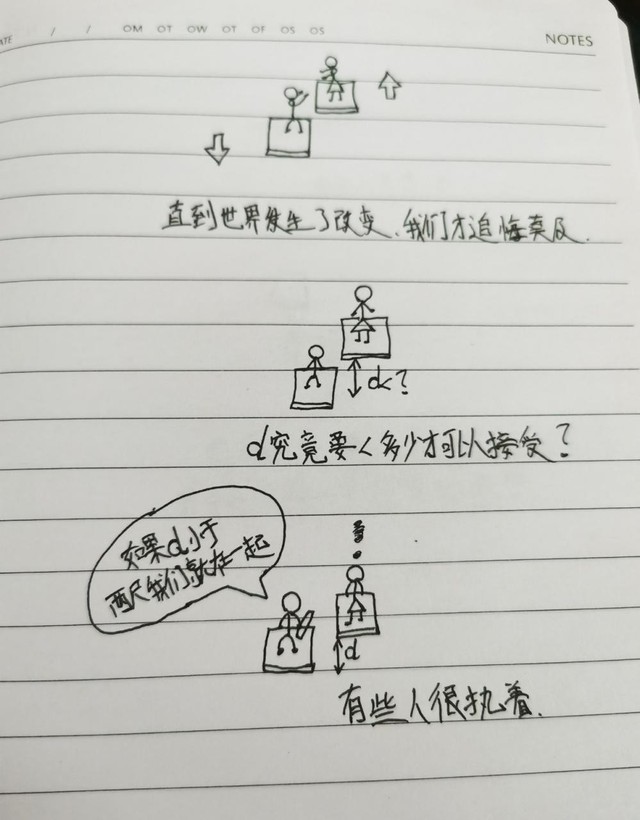 ATE / / OM OT OW OT OF OS OS
NOTES
直到世界发生了改变、我们才追悔莫及.
d<?
d究竟要<多少才可以接受?
如果d小于
两尺我们就在一起
d
有些人很执着.